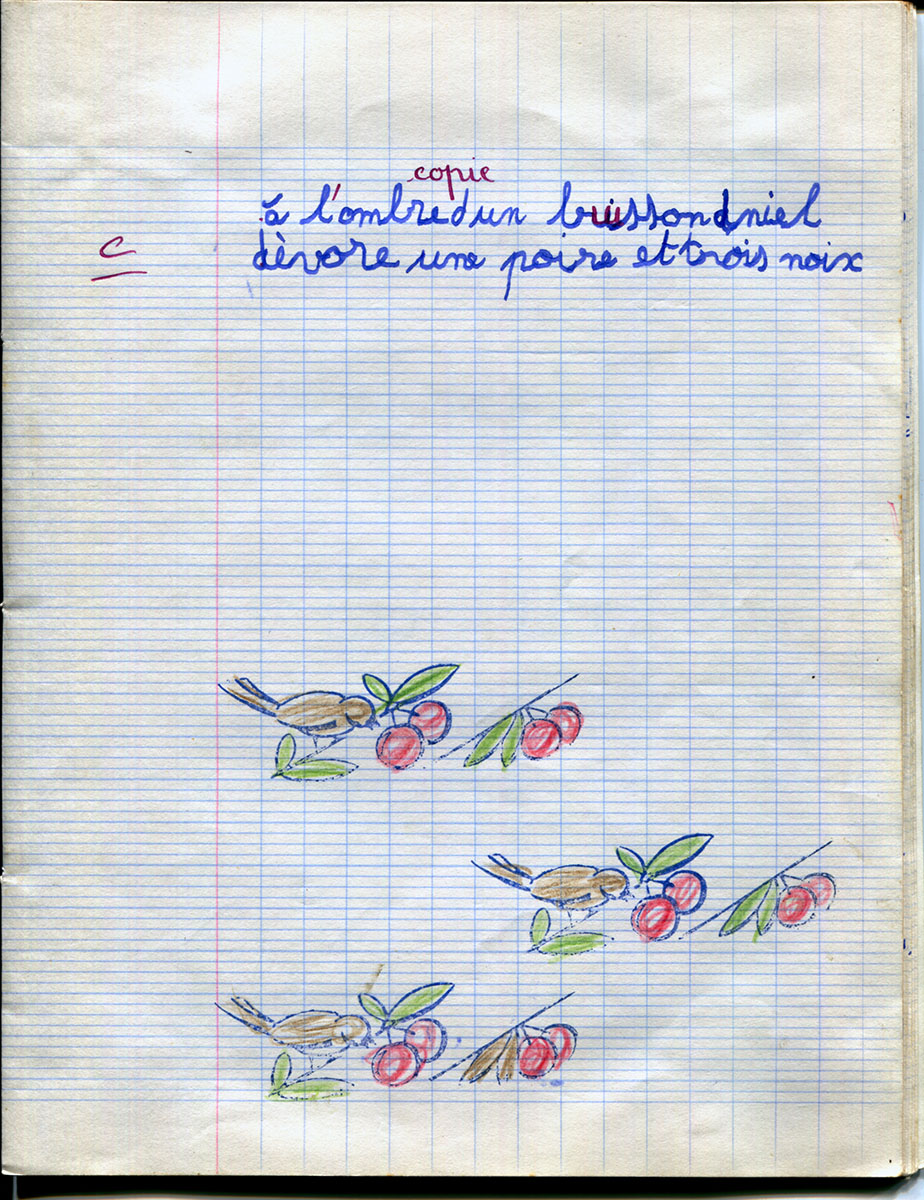 copie
à l'ombre d un buisson dniel
C
dèvore une poire et trois noix